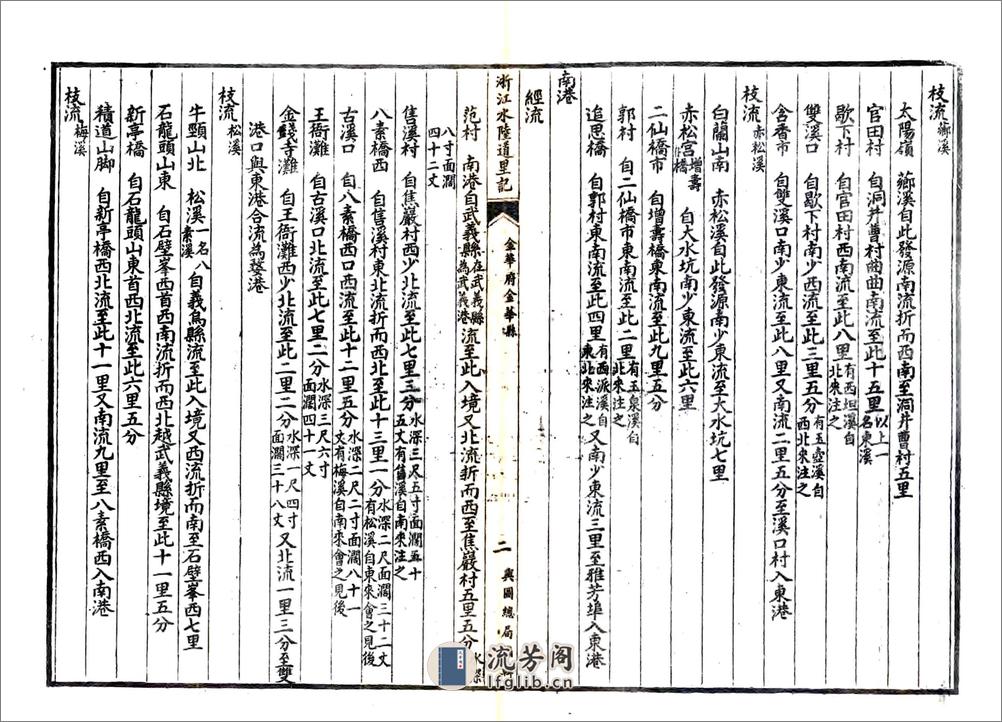 枝流薌溪
太陽嶺　薌溪自此發源南流折而西南至洞井曹村五里
官田村　自洞井曹村曲曲南流至此十五里以上一名東溪
歇下村　自官田村西南流至此八里有西坦溪自北來注之
雙溪口　自歇下村南少西流至此三里五分有五壺溪自西北來注之
含香市　自雙溪口南少東流至此八里又南流二里五分至溪口村入東港
枝流赤松溪
白蘭山南　赤松溪自此發源南少東流至大水坑七里
赤松宮增壽橋　自大水坑南少東流至此六里
二仙橋市　自增壽橋東南流至此九里五分
郭村　自二仙橋市東南流至此二里有玉泉溪自北來注之
追思橋　自郭村東南流至此四里有西派溪自東北來注之又南少東流三里至雅芳埠入東港
南港
經流
浙江水陸道里記　金華府金華縣　二　輿圖總局
范村　南港自武義縣在武義縣為武義港流至此入境又北流折而西至焦巖村五里五分水深
八寸面濶四十二丈
售溪村　自焦巖村西少北流至此七里三分水深三尺五寸面濶五十五丈有售溪自南來注之
八素橋西　自售溪村東北流折而西北至此十三里一分水深二尺面濶三十二丈有松溪自東來會之見後
古溪口　自八素橋西口西流至此十二里五分水深二尺二寸面濶八十一丈有梅溪自南來會之見後
王衙灘　自古溪口北流至此七里二分水深三尺六寸面濶四十一丈
金錢寺灘　自王衙灘西少北流至此二里二分水深一尺四寸面濶三十八丈又北流一里三分至雙
港口與東港合流為婺港
枝流松溪
牛頸山北　松溪一名八素溪自義烏縣流至此入境又西流折而南至石壁峯西七里
石龍頭山東　自石壁峯西首西南流折而西北越武義縣境至此十一里五分
新亭橋　自石龍頭山東首西北流至此六里五分
積道山脚　自新亭橋西北流至此十一里又南流九里至八素橋西入南港
枝流梅溪
流芳阁
lfglib.cn